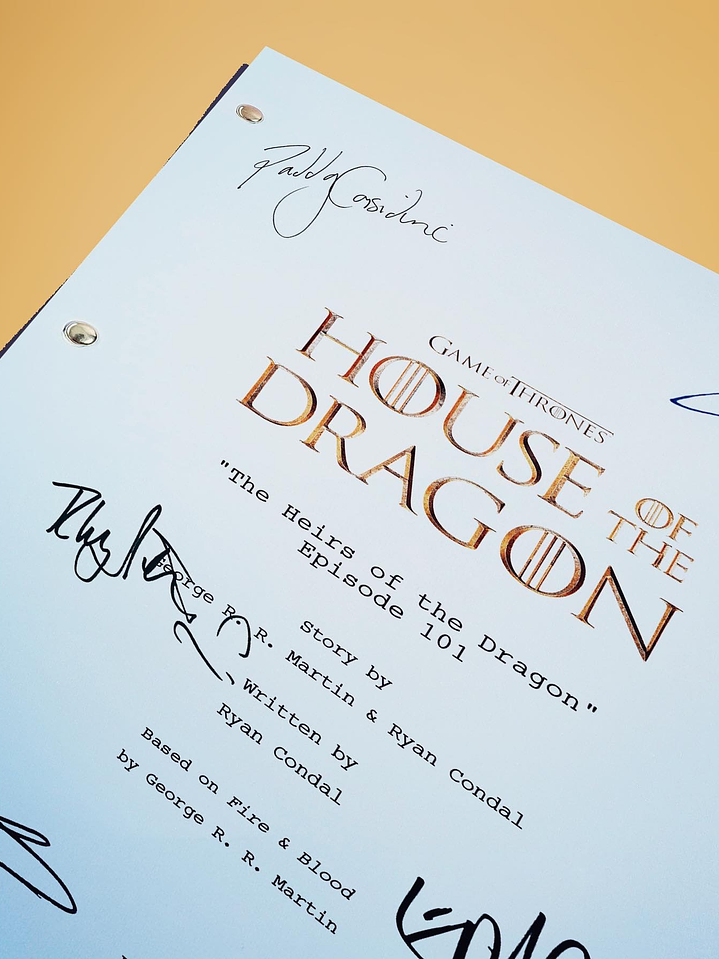 Paddy Considine
GAME OF THRONES
HOUSE OF THE
DRAGON
"The Heirs of the Dragon"
Episode 101
Story by
George R. R. Martin & Ryan Condal
Written by
Ryan Condal
Based on Fire & Blood
by George R. R. Martin